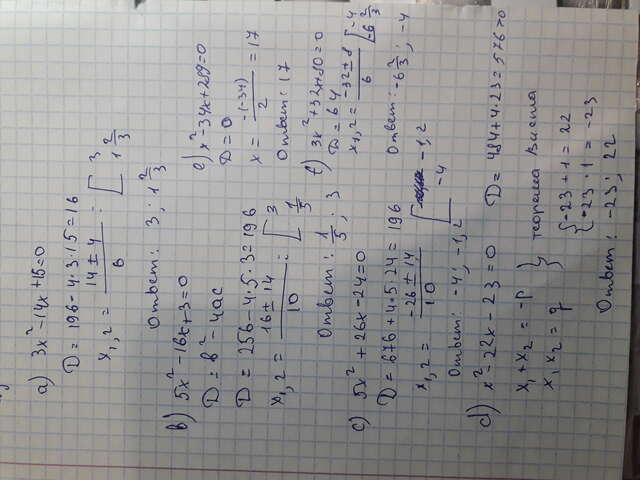 a) 3x²-14x+15=0
D=196-4·3·15=16
x₁,₂ = (14±4)/6 : [3; 1 2/3
Ответ: 3; 1 2/3
b) 5x²-16x+3=0
D=b²-4ac
D=256-4·5·3=196
x₁,₂ = (16±14)/10 : [3; 1/5
Ответ: 1/5; 3
c) 5x²+26x-24=0
D=676+4·5 24=196
x₁,₂ = (-26±14)/10 [-1,2; -4
Ответ: -4; -1,2
d) x²-22x-23=0 D=484+4·23=576=0
x₁+x₂=-p } теорема Виета
x₁x₂=q {-23+1=22
{-23·1=-23
Ответ: -23; 22
e) x²-34x+289=0
D=0
x = -(-34)/2 = 17
Ответ: 17
f) 3x²+32x+80=0
D=64
x₁,₂ = (-32±8)/6 [-4; -6 2/3
Ответ: -6 2/3; -4